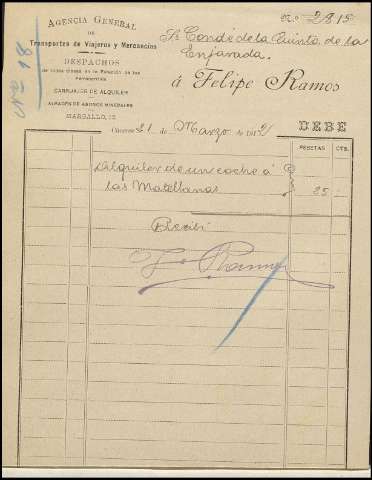 AGENCIA GENERAL
DE
Transportes de Viajeros y Mercancías
DESPACHOS
de todas clases en la Estación de los
Ferrocarriles
CARRUAJES DE ALQUILER
ALMACÉN DE ABONOS MINERALES
MARGALLO, 12
Nº 18
N.º 2815
Sr Conde de la Quinta de la
Enjarada.
á Felipe Ramos
Cáceres 21 de Marzo de 191
DEBE
PESETAS CTS.
Alquiler de un coche á
las Matellanas 25
Recibí
Ramos